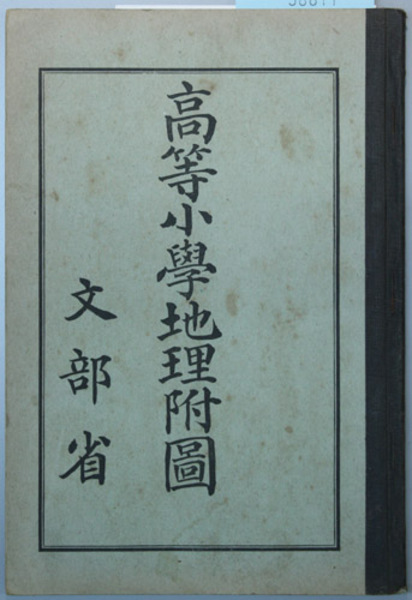 高等小學地理附圖
文部省